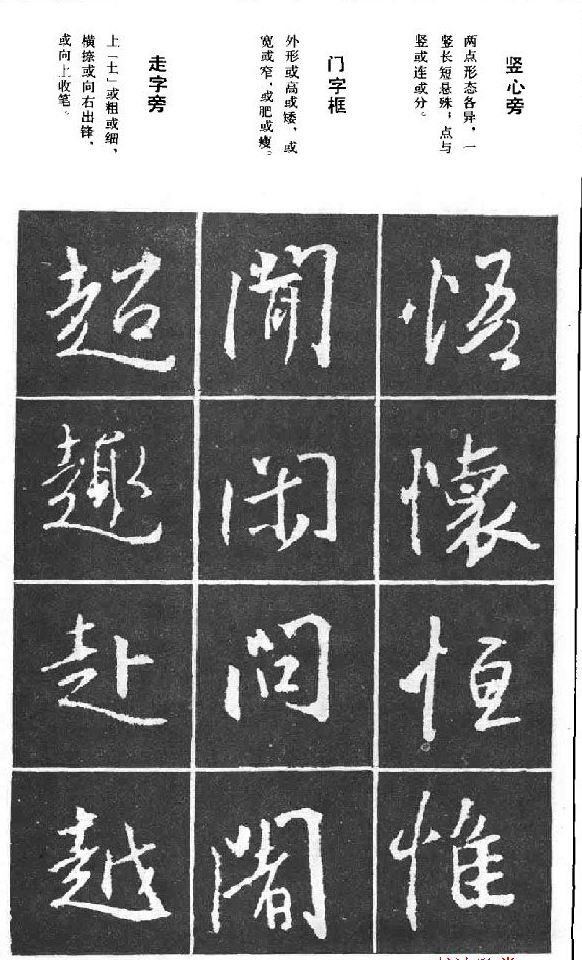 竖心旁
两点形态各异，一
竖长短悬殊；点与
竖或连或分。
门字框
外形或高或矮，或
宽或窄，或肥或瘦。
走字旁
上「土」或粗或细，
横捺或向右出锋，
或向上收笔。
悟
懷
恒
惟
闲
問
超
趣
赴
越